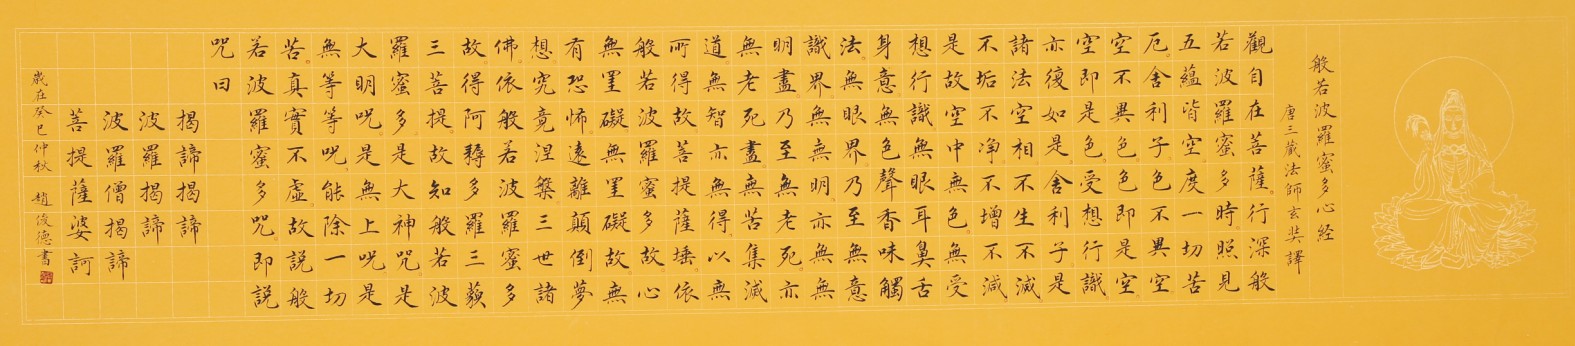 般若波羅蜜多心経
唐三藏法師玄奘譯
觀自在菩薩行深般
若波羅蜜多時照見
五蘊皆空度一切苦
厄舍利子色不異空
空不異色色即是空
空即是色受想行識
亦復如是舍利子是
諸法空相不生不滅
不垢不净不增不減
是故空中無色無受
想行識無眼耳鼻舌
身意無色聲香味觸
法無眼界乃至無意
識界無無明亦無無
明盡乃至無老死亦
無老死盡無苦集滅
道無智亦無得以無
所得故菩提薩埵依
般若波羅蜜多故心
無罣礙無罣礙故無
有恐怖遠離顛倒夢
想究竟涅槃三世諸
佛依般若波羅蜜多
故得阿耨多羅三藐
三菩提故知般若波
羅蜜多是大神咒是
大明咒是無上咒是
無等等咒能除一切
苦真實不虛故說般
若波羅蜜多咒即說
咒曰
揭諦揭諦
波羅揭諦
波羅僧揭諦
菩提薩婆訶
歲在癸巳仲秋 趙俊德書